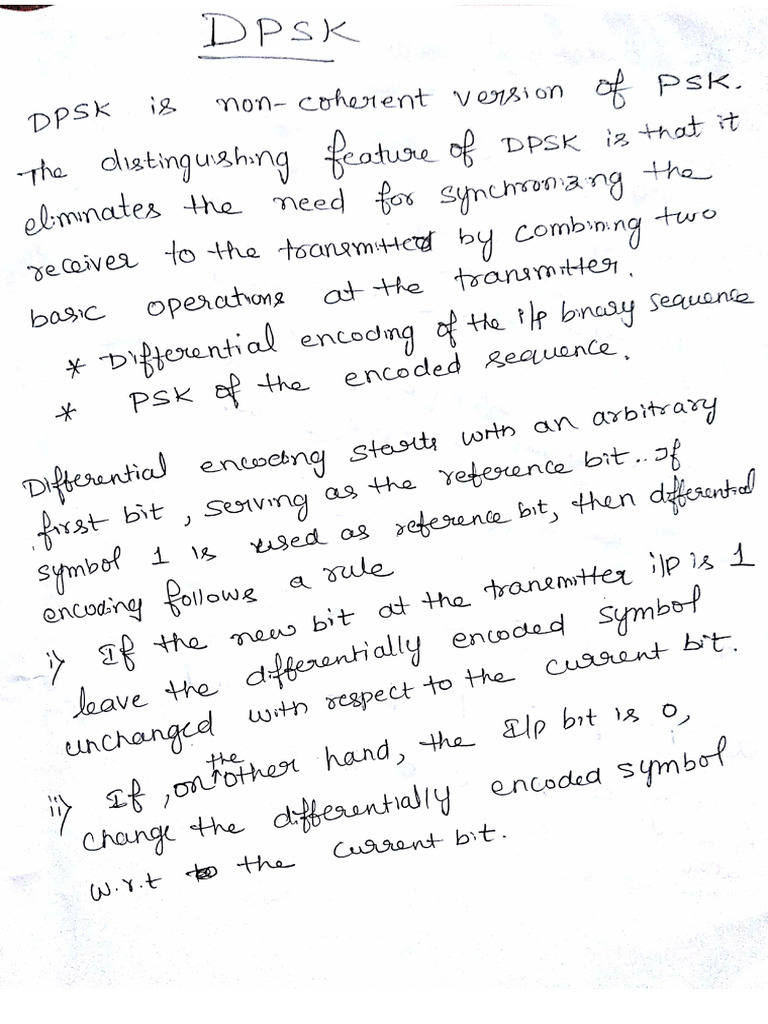 DPSK
DPSK is non-coherent version of PSK.
The distinguishing feature of DPSK is that it
eliminates the need for synchronizing the
receiver to the transmitted by combining two
basic operations at the transmitter.
* Differential encoding of the i/p binary sequence
* PSK of the encoded sequence.
Differential encoding starts with an arbitrary
first bit, serving as the reference bit.. If
symbol 1 is used as reference bit, then differential
encoding follows a rule
i) If the new bit at the transmitter i/p is 1
leave the differentially encoded symbol
unchanged with respect to the current bit.
ii) If, on the other hand, the I/p bit is 0,
change the differentially encoded symbol
w.r.t to the current bit.